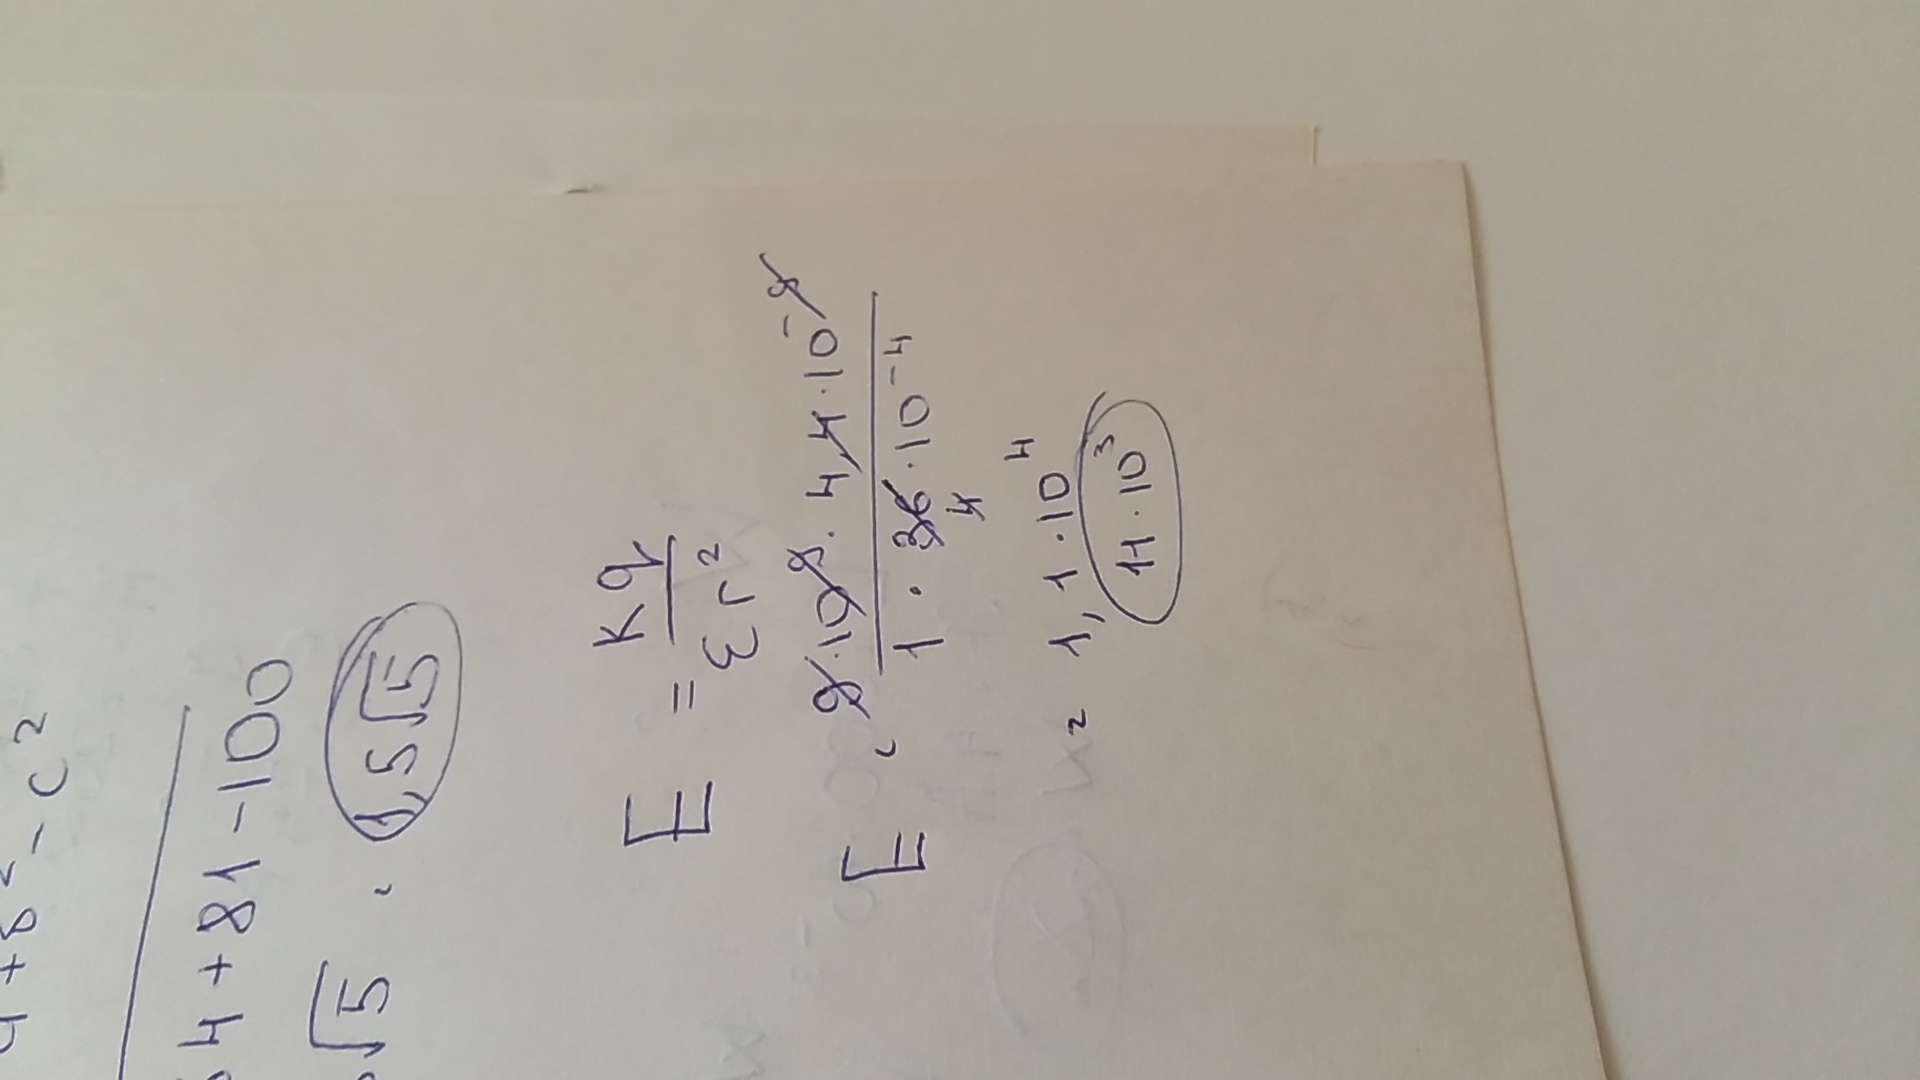 4 + 8² - c²
64 + 81 - 100
√5 · 1,5√5
E = kq / εr²
E = 9·10⁹ · 4,4·10⁻⁹ / 1 · 36·10⁻⁴
4
= 1,1·10⁴
11·10³